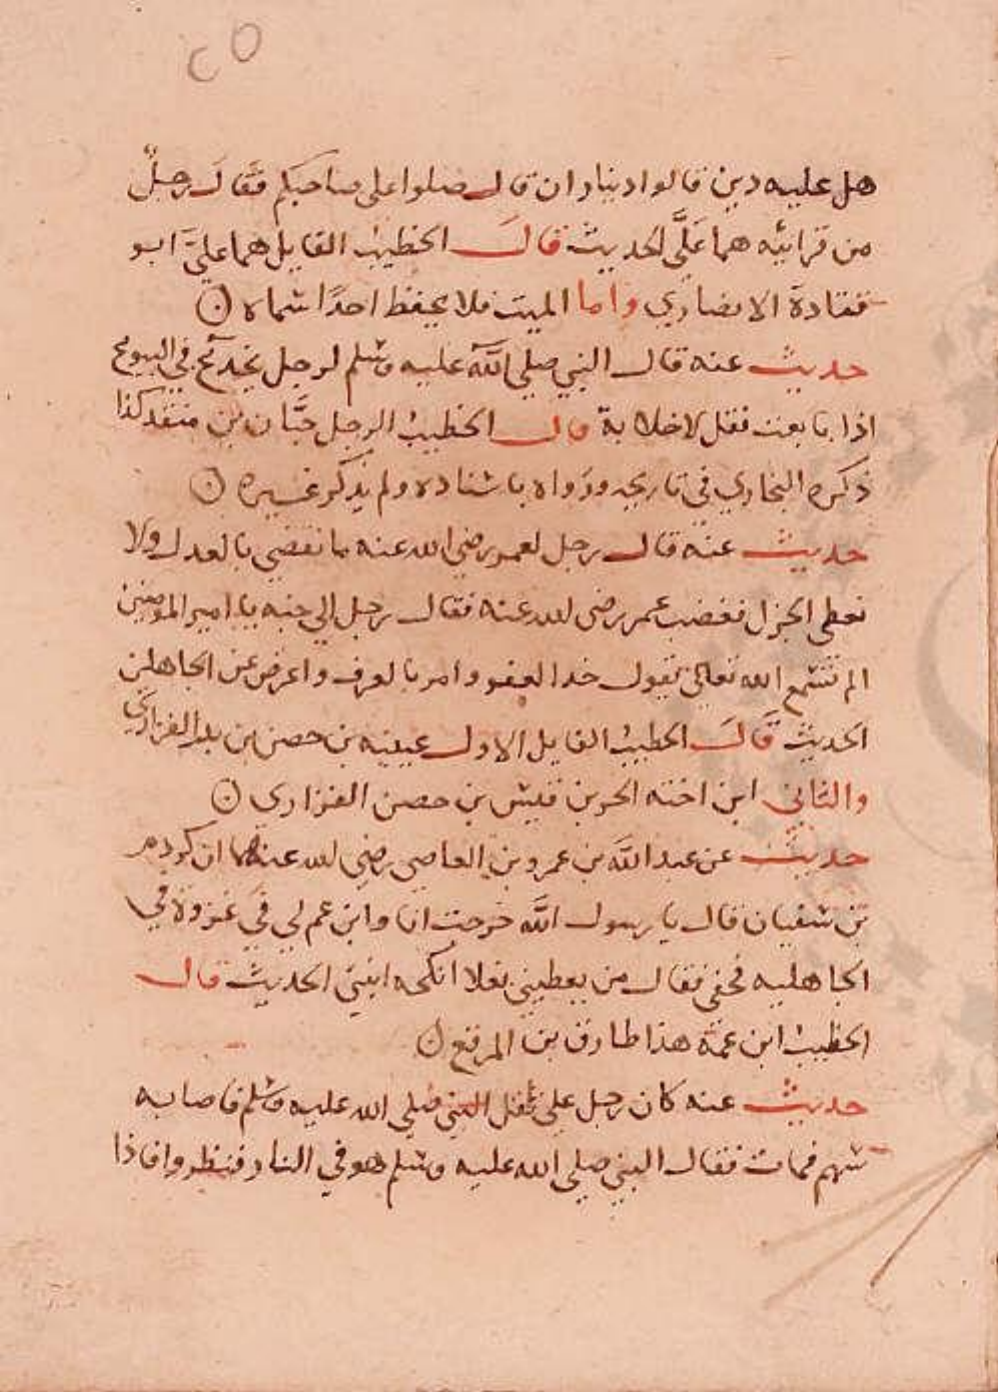 ٢٥
هل عليه دين قالوا ديناران قال صلوا على صاحبكم فقال رجل
من قرابته هما علي الحديث قال الخطيب القايل هما علي ابو
قتادة الانصاري واما الميت فلا يحفظ احدا سماه
حديث عنه قال النبي صلى الله عليه وسلم لرجل يخدع في البيوع
اذا بايعت فقل لا خلابة قال الخطيب الرجل حبان بن منقذ كذا
ذكره البخاري في تاريخه ورواه باسناده ولم يذكر غيره
حديث عنه قال رجل لعمر رضي الله عنه ما تقضي بالعدل ولا
تعطي الجزل فغضب عمر رضى الله عنه فقال رجل الي جنبه يا امير المومنين
الم تسمع الله تعالى يقول خذ العفو وامر بالعرف واعرض عن الجاهلين
الحديث قال الخطيب القايل الاول عيينه بن حصن بن بدر الفزاري
والثاني ابن اخته الحر بن قيس بن حصن الفزاري
حديث عن عبد الله بن عمرو بن العاصي رضي الله عنهما ان كردم
بن سفيان قال يا رسول الله خرجت انا وابن عم لي في غزوة في
الجاهليه فحفي فقال من يعطيني نعلا انكحه ابنتي الحديث قال
الخطيب ابن عمه هذا طارق بن المرقع
حديث عنه كان رجل على ثقل النبي صلى الله عليه وسلم فاصابه
سهم فمات فقال النبي صلى الله عليه وسلم هو في النار فنظروا فاذا